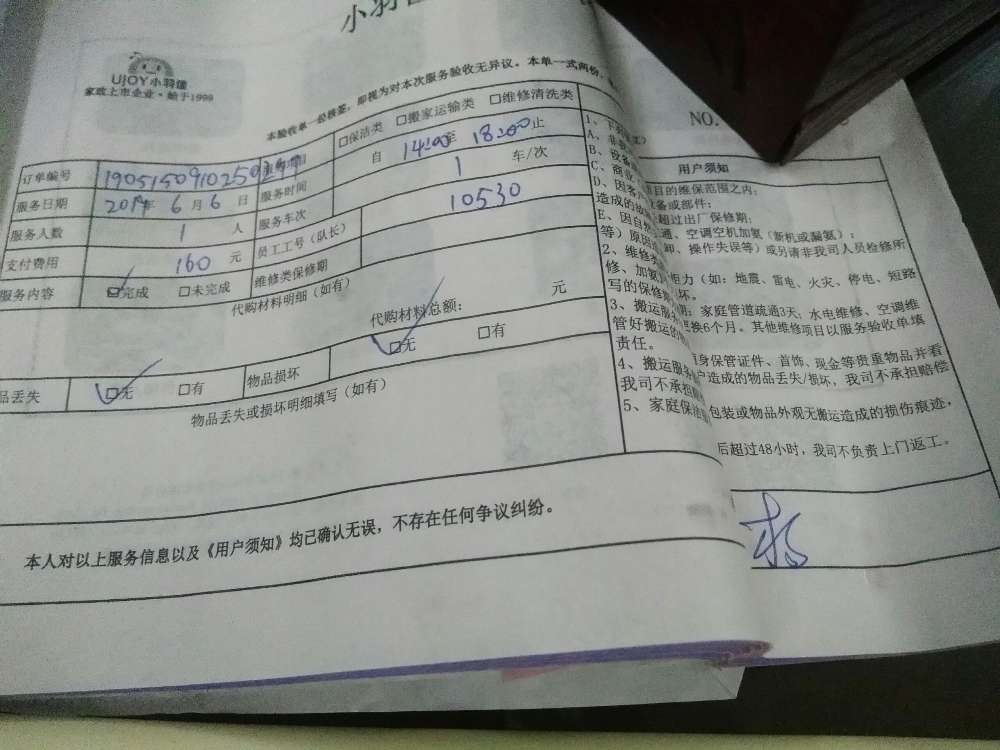 小羽
UJOY小羽佳
家政上市企业·始于1999
本验收单一经核签，即视为对本次服务验收无异议。本单一式两份，
NO.
订单编号
□保洁类 □搬家运输类 □维修清洗类
服务日期 2019年 6 月 6 日 服务时间 自 14:00 至 18:00 止
服务人数 1 人 服务车次 1 车/次
支付费用 160 元 员工工号（队长） 10530
服务内容 ☑完成 □未完成 维修类保修期
代购材料明细（如有）
代购材料总额： 元
品丢失 ☑无 □有 物品损坏 ☑无 □有
物品丢失或损坏明细填写（如有）
本人对以上服务信息以及《用户须知》均已确认无误，不存在任何争议纠纷。
1、下
A、非
B、设备
C、商业
D、因客
造成的故
E、因自然
等）原因
2、维修
修、加氨
写的保修
3、搬运服
管好搬运的
责任。
4、搬运服务
我司不承担
5、家庭保洁
用户须知
项目的维保范围之内：
设备或部件；
超过出厂保修期；
通、空调空机加氨（新机或漏氨）；
卸、操作失误等）或另请非我司人员检修所
拒力（如：地震、雷电、火灾、停电、短路
坏。
期：家庭管道疏通3天、水电维修、空调维
更换6个月。其他维修项目以服务验收单填
随身保管证件、首饰、现金等贵重物品并看
户造成的物品丢失/损坏，我司不承担赔偿
包装或物品外观无搬运造成的损伤痕迹，
后超过48小时，我司不负责上门返工。